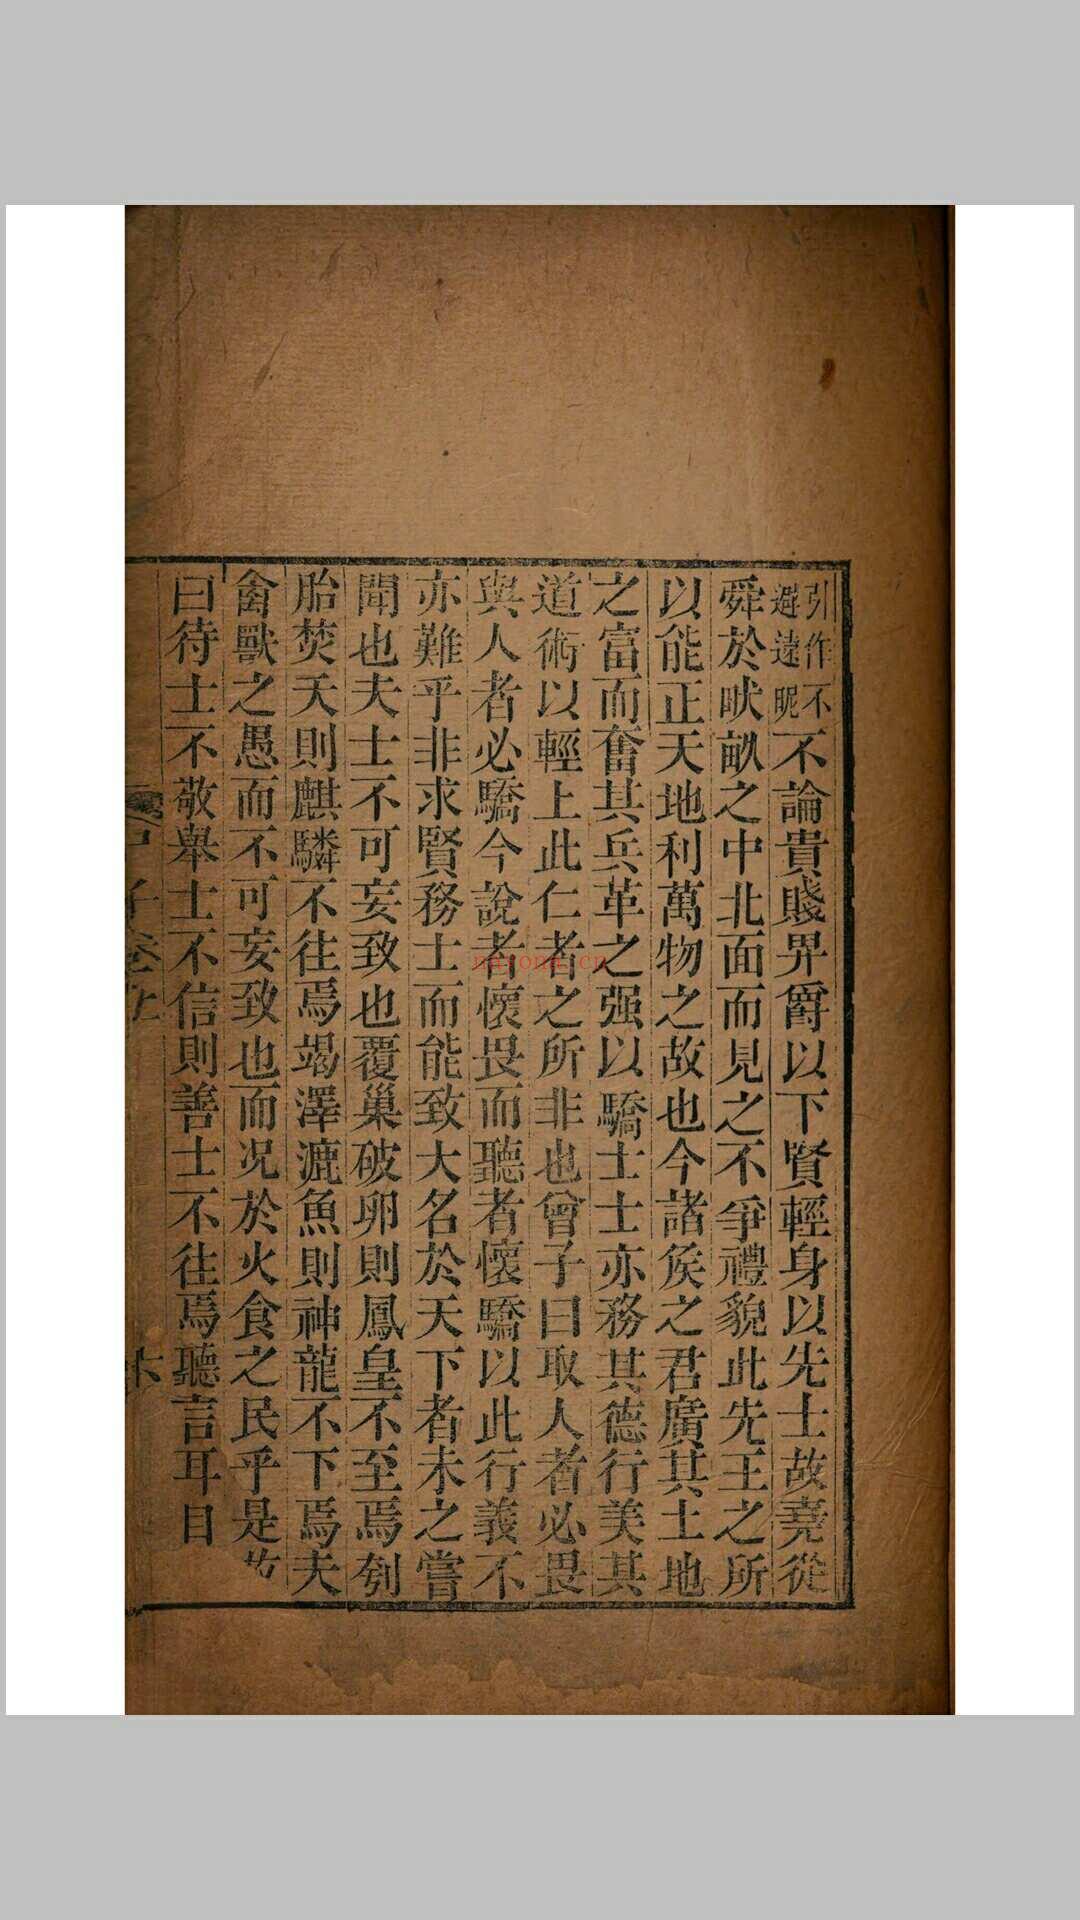 引作不避遠昵不論貴賤卑爵以下賢輕身以先士故堯從
舜於畎畝之中北面而見之不爭禮貌此先王之所
以能正天地利萬物之故也今諸侯之君廣其土地
之富而奮其兵革之强以驕士士亦務其德行美其
道術以輕上此仁者之所非也曾子曰取人者必畏
與人者必驕今說者懷畏而聽者懷驕以此行義不
亦難乎非求賢務士而能致大名於天下者未之嘗
聞也夫士不可妄致也覆巢破卵則鳳皇不至焉刳
胎焚夭則麒麟不往焉竭澤漉魚則神龍不下焉夫
禽獸之愚而不可妄致也而况於火食之民乎是故
曰待士不敬舉士不信則善士不往焉聽言耳目
子卷上
nayona.cn